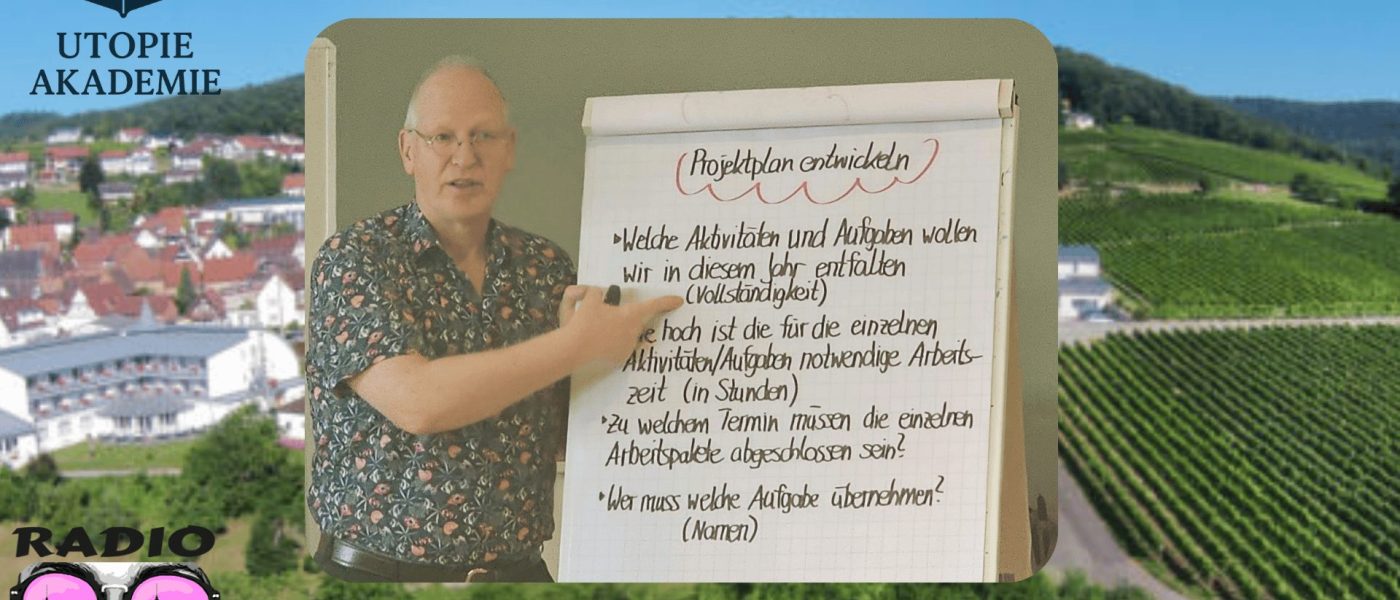 UTOPIE
AKADEMIE
Projektplan entwickeln
Welche Aktivitäten und Aufgaben wollen
wir in diesem Jahr entfalten
(Vollständigkeit)
hoch ist die für die einzelnen
Aktivitäten/Aufgaben notwendige Arbeits-
zeit (in Stunden)
Zu welchem Termin müssen die einzelnen
Arbeitspakete abgeschlossen sein?
Wer muss welche Aufgabe übernehmen?
(Namen)
RADIO